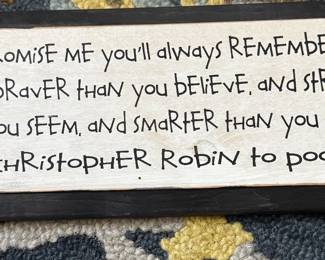 ROMISE ME you'll always REMEMBE
BRAVER tHAN you bELiEVE, and stR
OU SEEM, and SMARtER tHAN you
CHRistopHER Robin to poo